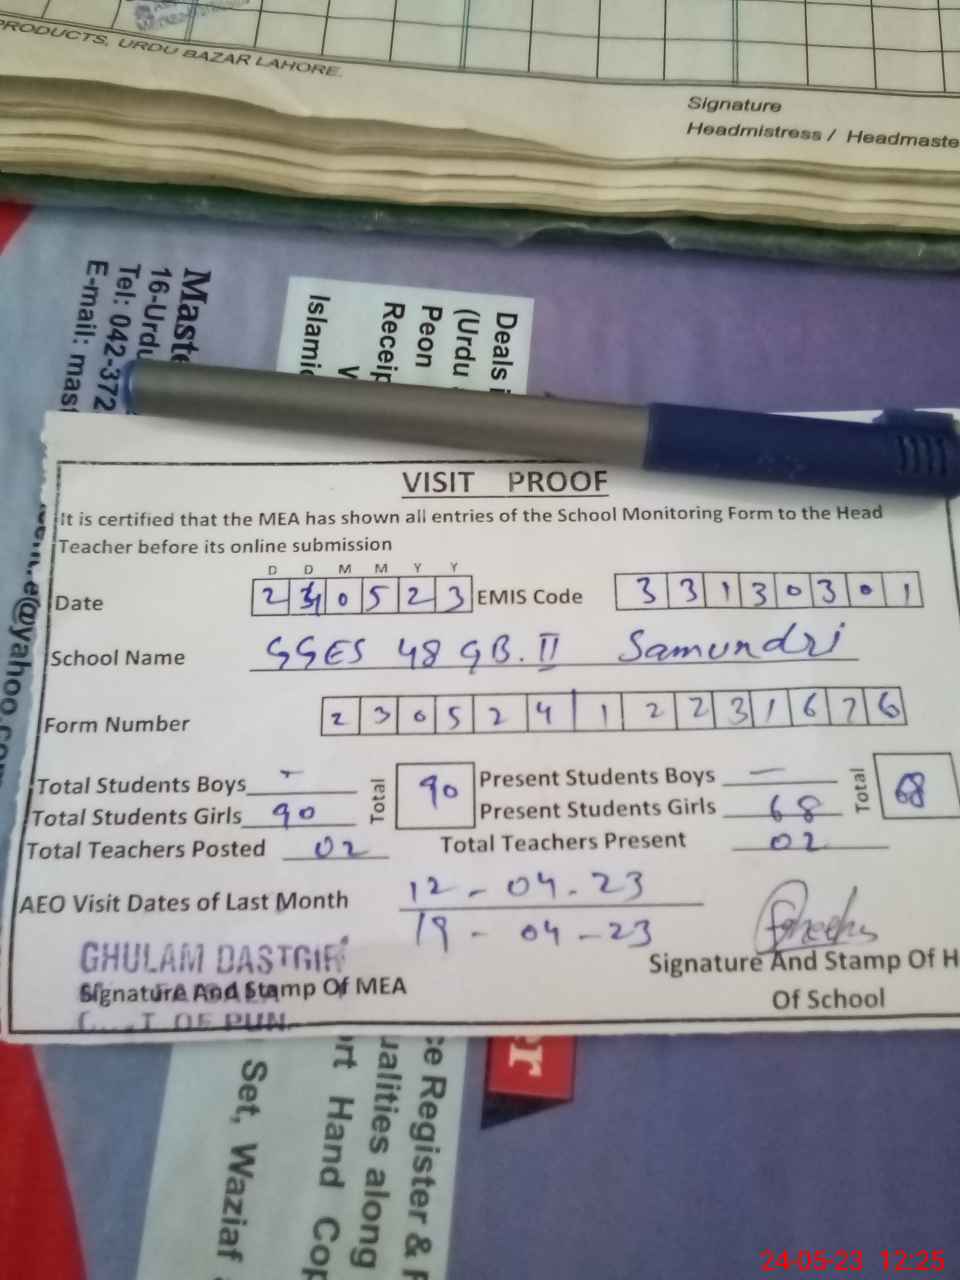 PRODUCTS, URDU BAZAR LAHORE.
Signature
Headmistress / Headmaste
Maste
16-Urdu
Tel: 042-372
E-mail: mast
Deals i
(Urdu
Peon
Receip
Islamic
VISIT PROOF
It is certified that the MEA has shown all entries of the School Monitoring Form to the Head
Teacher before its online submission
D D M M Y Y
Date 240523 EMIS Code 33130301
School Name GGES 48 GB. II Samundri
Form Number 23052412231676
Total Students Boys - Total 90 Present Students Boys - Total 68
Total Students Girls 90 Present Students Girls 68
Total Teachers Posted 02 Total Teachers Present 02
AEO Visit Dates of Last Month 12-04-23
19-04-23
GHULAM DASTGIR
Signature And Stamp Of MEA
Signature And Stamp Of H
Of School
T. OF PUN
@yahoo.com
er
ce Register &
ualities along
rt Hand Cop
Set, Waziaf
24-05-23 12:25